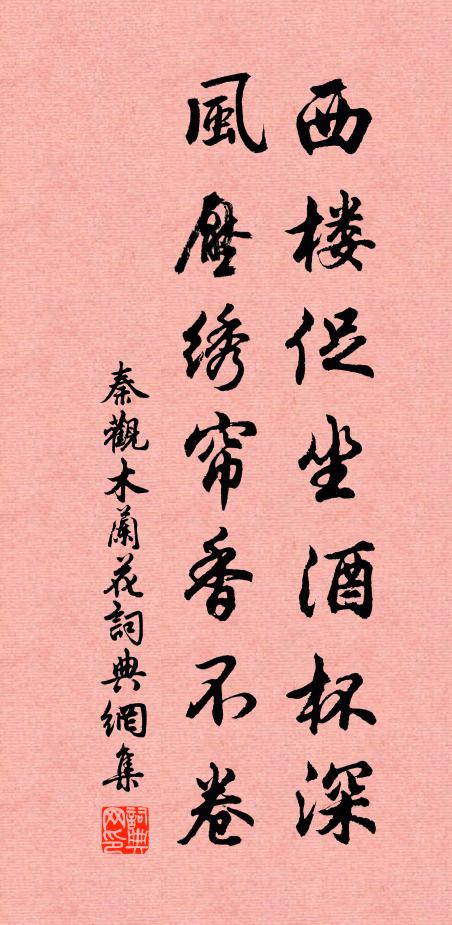 西楼促坐酒杯深
風壓绣帘香不卷
秦觀木蘭花詞典網集
詞典网印